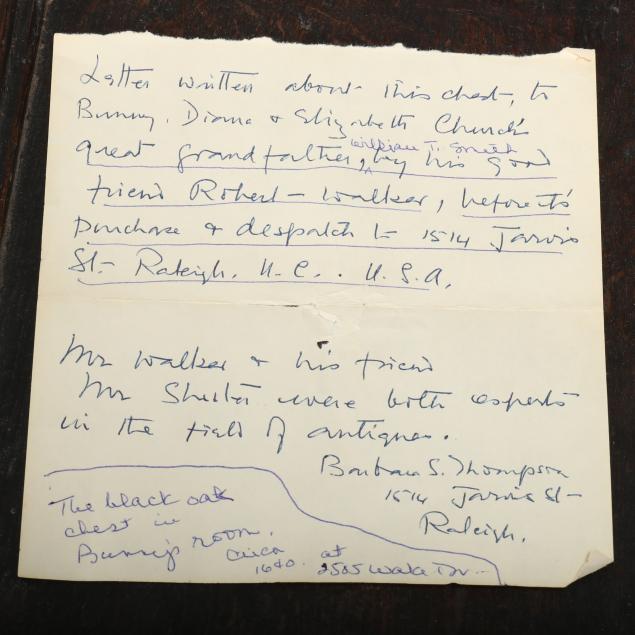 Letter written about this chest, to
Bunny, Diana & Elizabeth Church's
great grandfather, William T. Smith by his good
friend Robert Walker, before its
purchase & despatch to 1514 Jarvis
St- Raleigh. N.C.. U.S.A.
Mr Walker & his friend
Mr Shuter were both experts
in the field of antiques.
Barbara S. Thompson
1514 Jarvis St-
Raleigh.
The black oak
chest in
Bunny's room.
circa
1640. at
2505 Wake Dr-